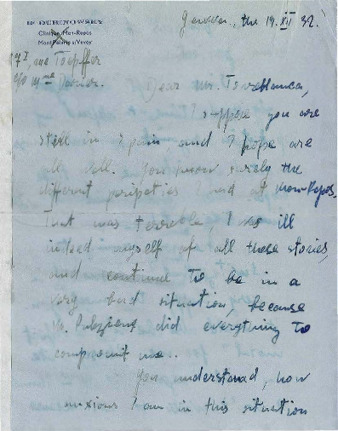 Dr OCHINOWSKY
Clinique Mon-Repos
Mont Pèlerin s/Vevey
Geneva, the 19. XII 32.
Dear Mr.
I suppose you are
still in Spain and I hope are
all well. You know surely the
different peripeties I had at Mon-Repos.
That was terrible, I as ill
indeed myself of all these stories,
and continue to be in a
very bad situation, because
did everything to
me.
You understand, how
anxious I am in this situation